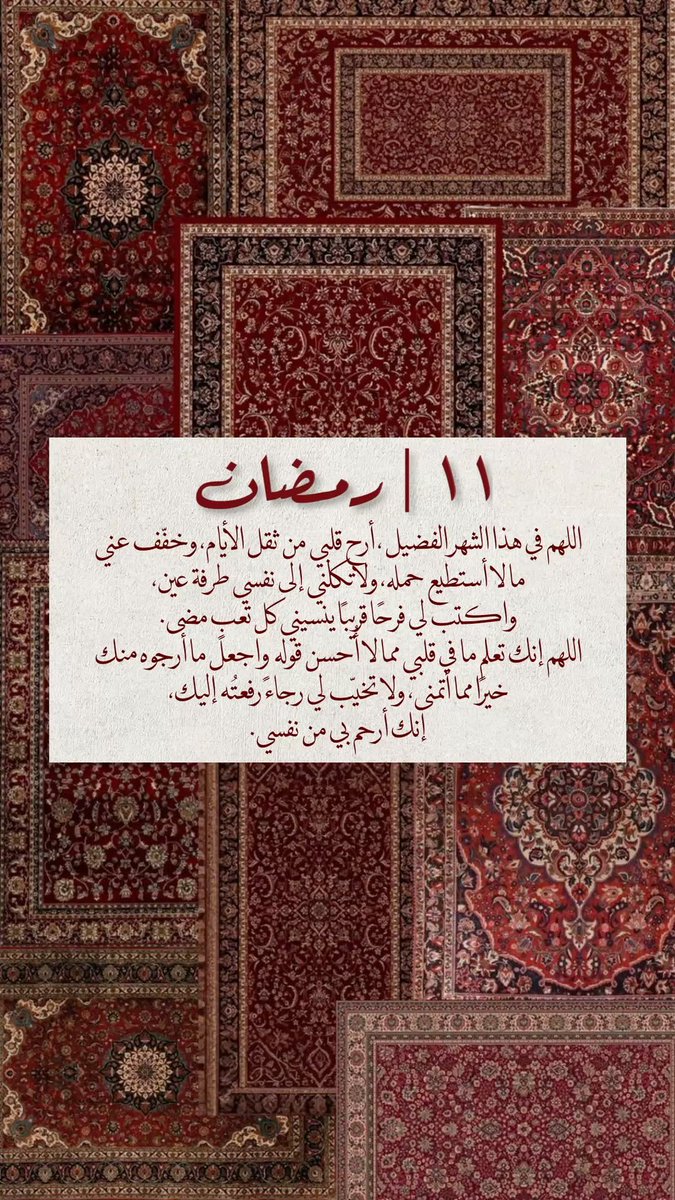 ١١ | رمضان
اللهم في هذا الشهر الفضيل، أرح قلبي من ثقل الأيام، وخفّف عني
مالا أستطيع حمله، ولا تكلني إلى نفسي طرفة عين،
واكتب لي فرحًا قريبًا ينسيني كل تعبٍ مضى.
اللهم إنك تعلم ما في قلبي ممالا أُحسن قوله واجعل ما أرجوه منك
خيرًا مما أتمنى، ولا تخيّب لي رجاءً رفعتُه إليك،
إنك أرحم بي من نفسي.